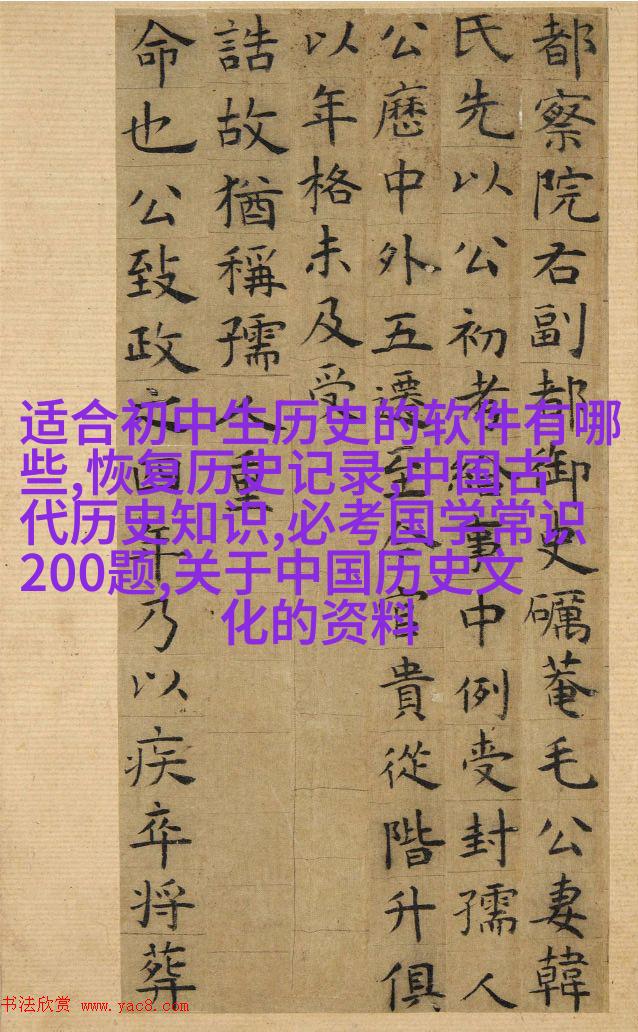 都察院右副都御史礪菴毛公妻韓
氏先以公初考給事中例受封孺人
公歷中外五遷至今官貴從階升俱
以年格未及受
誥故猶稱孺人重
命也公致政之四年乃以疾卒將葬
适合初中生历史的软件有哪
些,恢复历史记录,中国古
代历史知识,必考国学常识
200题,关于中国历史文
化的资料
书法欣赏 www.yac8.com